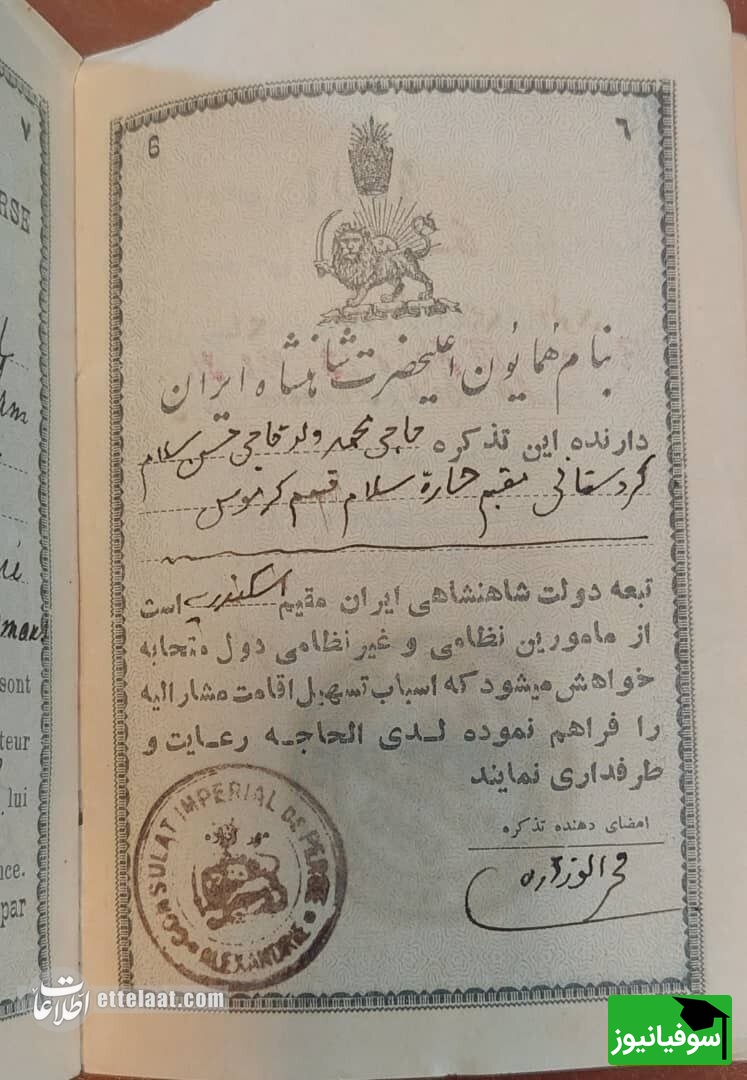 6
٦
بنام همایون اعلیحضرت شاهنشاه ایران
دارنده این تذکره حاجی محمد ولد حاجی حسن سلام
کردستانی مقیم حارة سلام قسم کرموس
تبعه دولت شاهنشاهی ایران مقیم اسکندریه است
از مامورین نظامی و غیر نظامی دول متحابه
خواهش میشود که اسباب تسهیل اقامت مشارالیه
را فراهم نموده لدی الحاجه رعایت و
طرفداری نمایند
امضای دهنده تذکره
CONSULAT IMPERIAL DE PERSE
ALEXANDRIE
٧
RSE
sont
teur
lui
nce.
par
اطلاعات ettelaat.com
سوفیانیوز